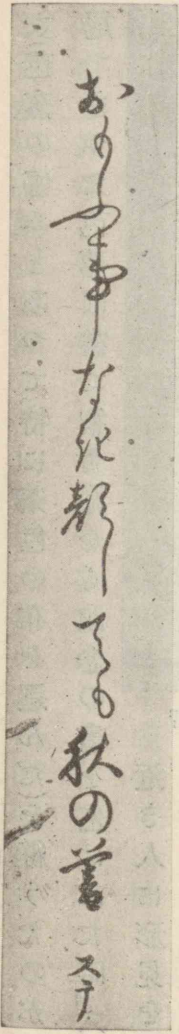 おもふ事なき顔しても秋の暮 ステ